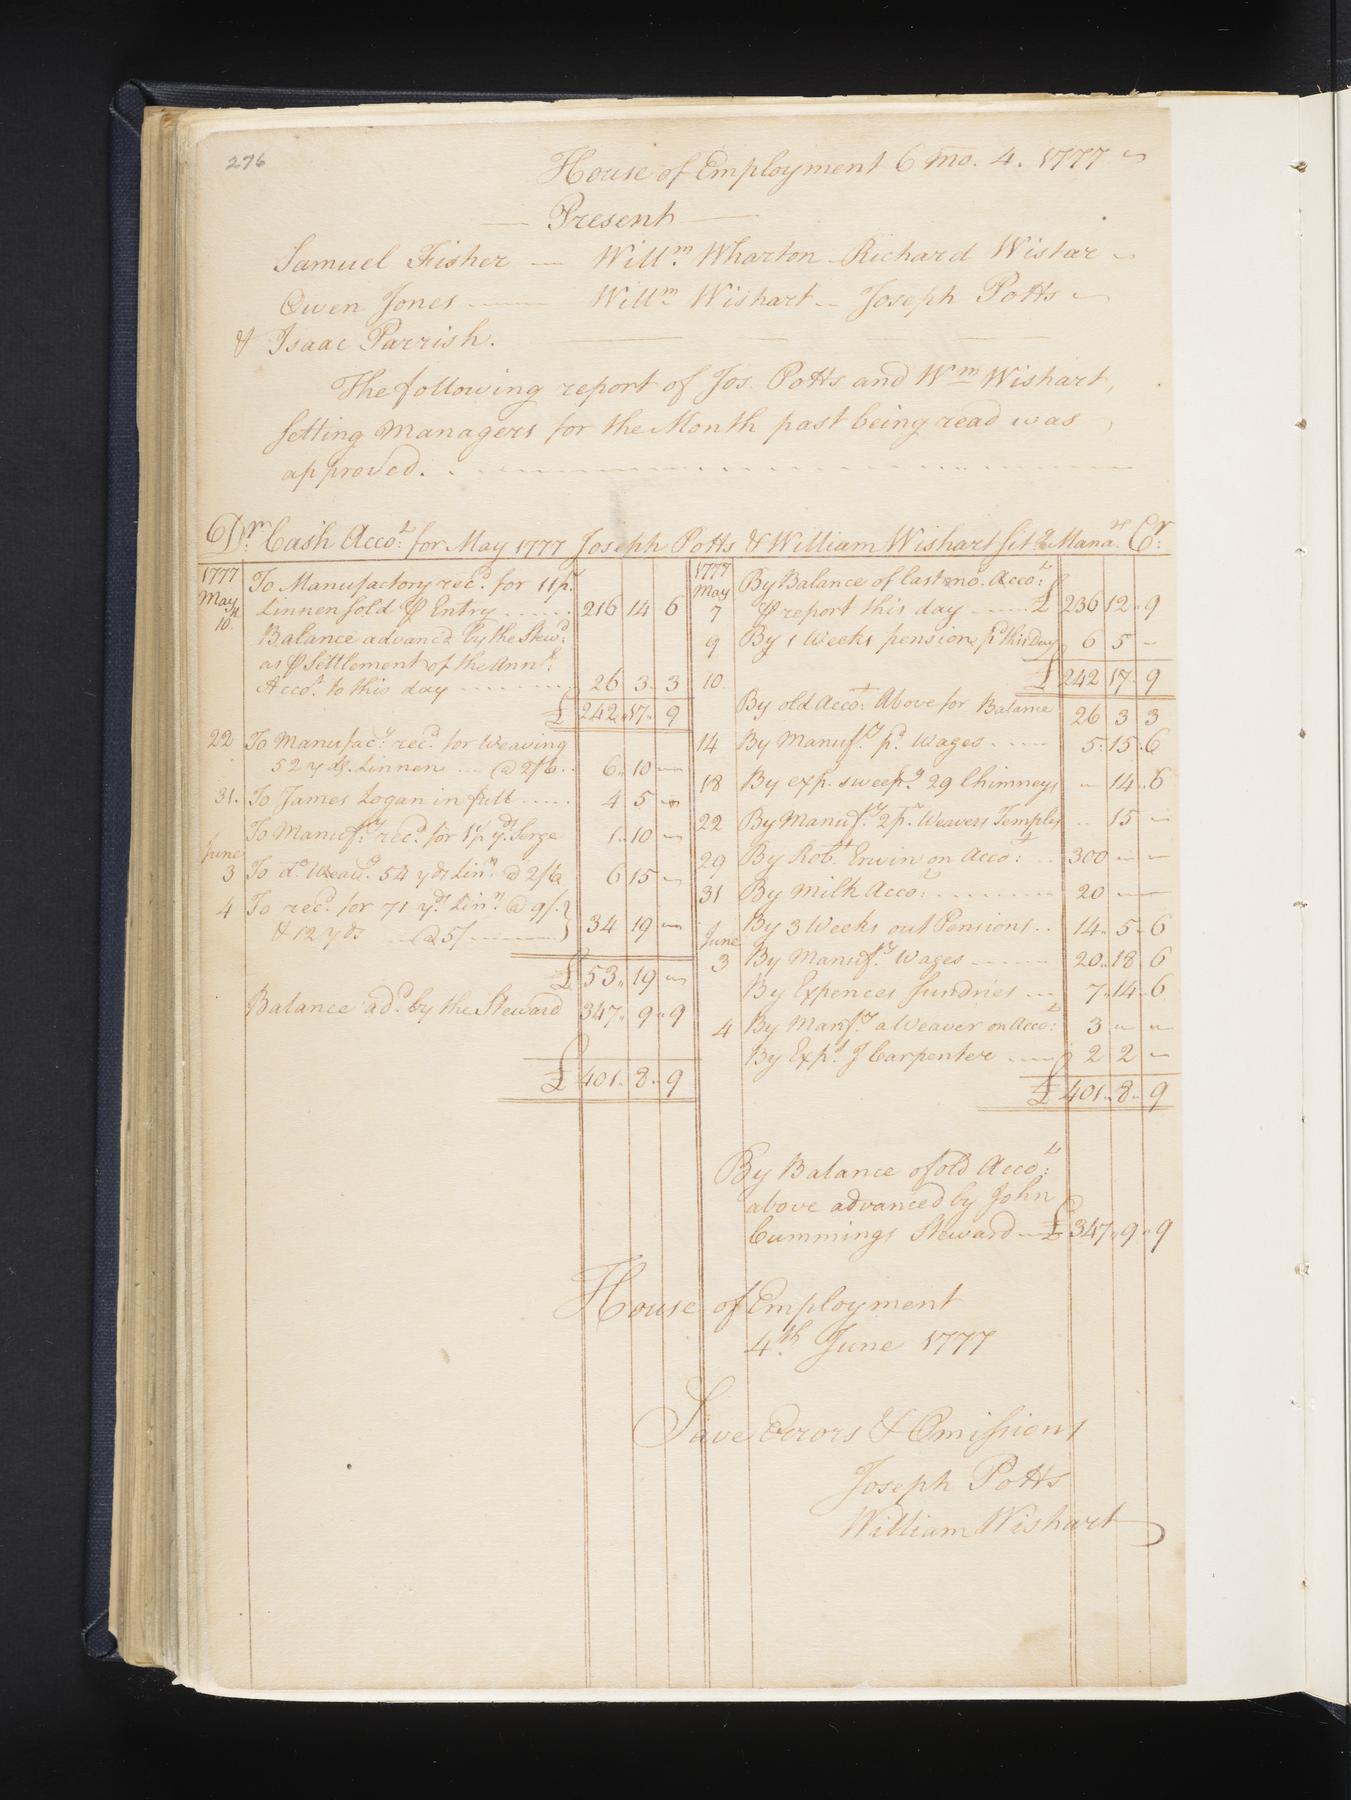 276
House of Employment 6 mo. 4. 1777
Present
Samuel Fisher — Willm. Wharton - Richard Wistar
Owen Jones — Willm Wishart - Joseph Potts
& Isaac Parrish.
The following report of Jos. Potts and Wm Wishart,
Setting Managers for the Month past being read was
approved.
Dr. Cash Accot. for May 1777 Joseph Potts & William Wishart Sitg Manars. Cr.
1777 To Manufactory recd. for 11 ps.
May
10. Linnen sold ⅌ Entry 216 14 6
Balance advancd by the Stewd.
as ⅌ Settlement of the Annl.
Accot. to this day 26 3 3
£ 242 17 9
22 To Manufacy. recd. for Weaving
52 yds. Linnen @ 2/6 6 10 —
31. To James Logan in full 4 5 —
To Manufy. recd. for 1 ps yd. Serge 1 10 —
June
3 To do. Weavg. 54 yds Linn. @ 2/6 6 15 —
4 To recd. for 71 yds. Linn. @ 9/.
& 12 yds @ 5/ 34 19 —
£ 53 19 —
Balance ad'd. by the Steward 347 9 9
£ 401 8 9
1777 By Balance of last mo. Accot.
May
7 ⅌ report this day £ 236 12 9
9 By 1 Weeks pension pd this Day 6 5 —
10. £ 242 17 9
By old Accot. Above for Balance 26 3 3
14 By Manufy. pd. Wages 5 15 6
18 By exp. sweepg 29 Chimneys — 14 6
22 By Manufy. 2 pr. Weavers Temples .. 15 —
29 By Robt. Erwin on Accot. 300 — —
31 By Milk Accot. 20 — —
By 3 Weeks out Pensions 14 5 6
June
3 By Manufy. Wages 20 18 6
By Expences Sundries 7 14 6
4 By Manfy. a Weaver on Accot. 3 — —
By Exps. J Carpenter 2 2 —
£ 401 8 9
By Balance of old Accot.
above advanced by John
Cummings Steward — £ 347 9 9
House of Employment
4th. June 1777
Save Errors & Omissions
Joseph Potts
William Wishart